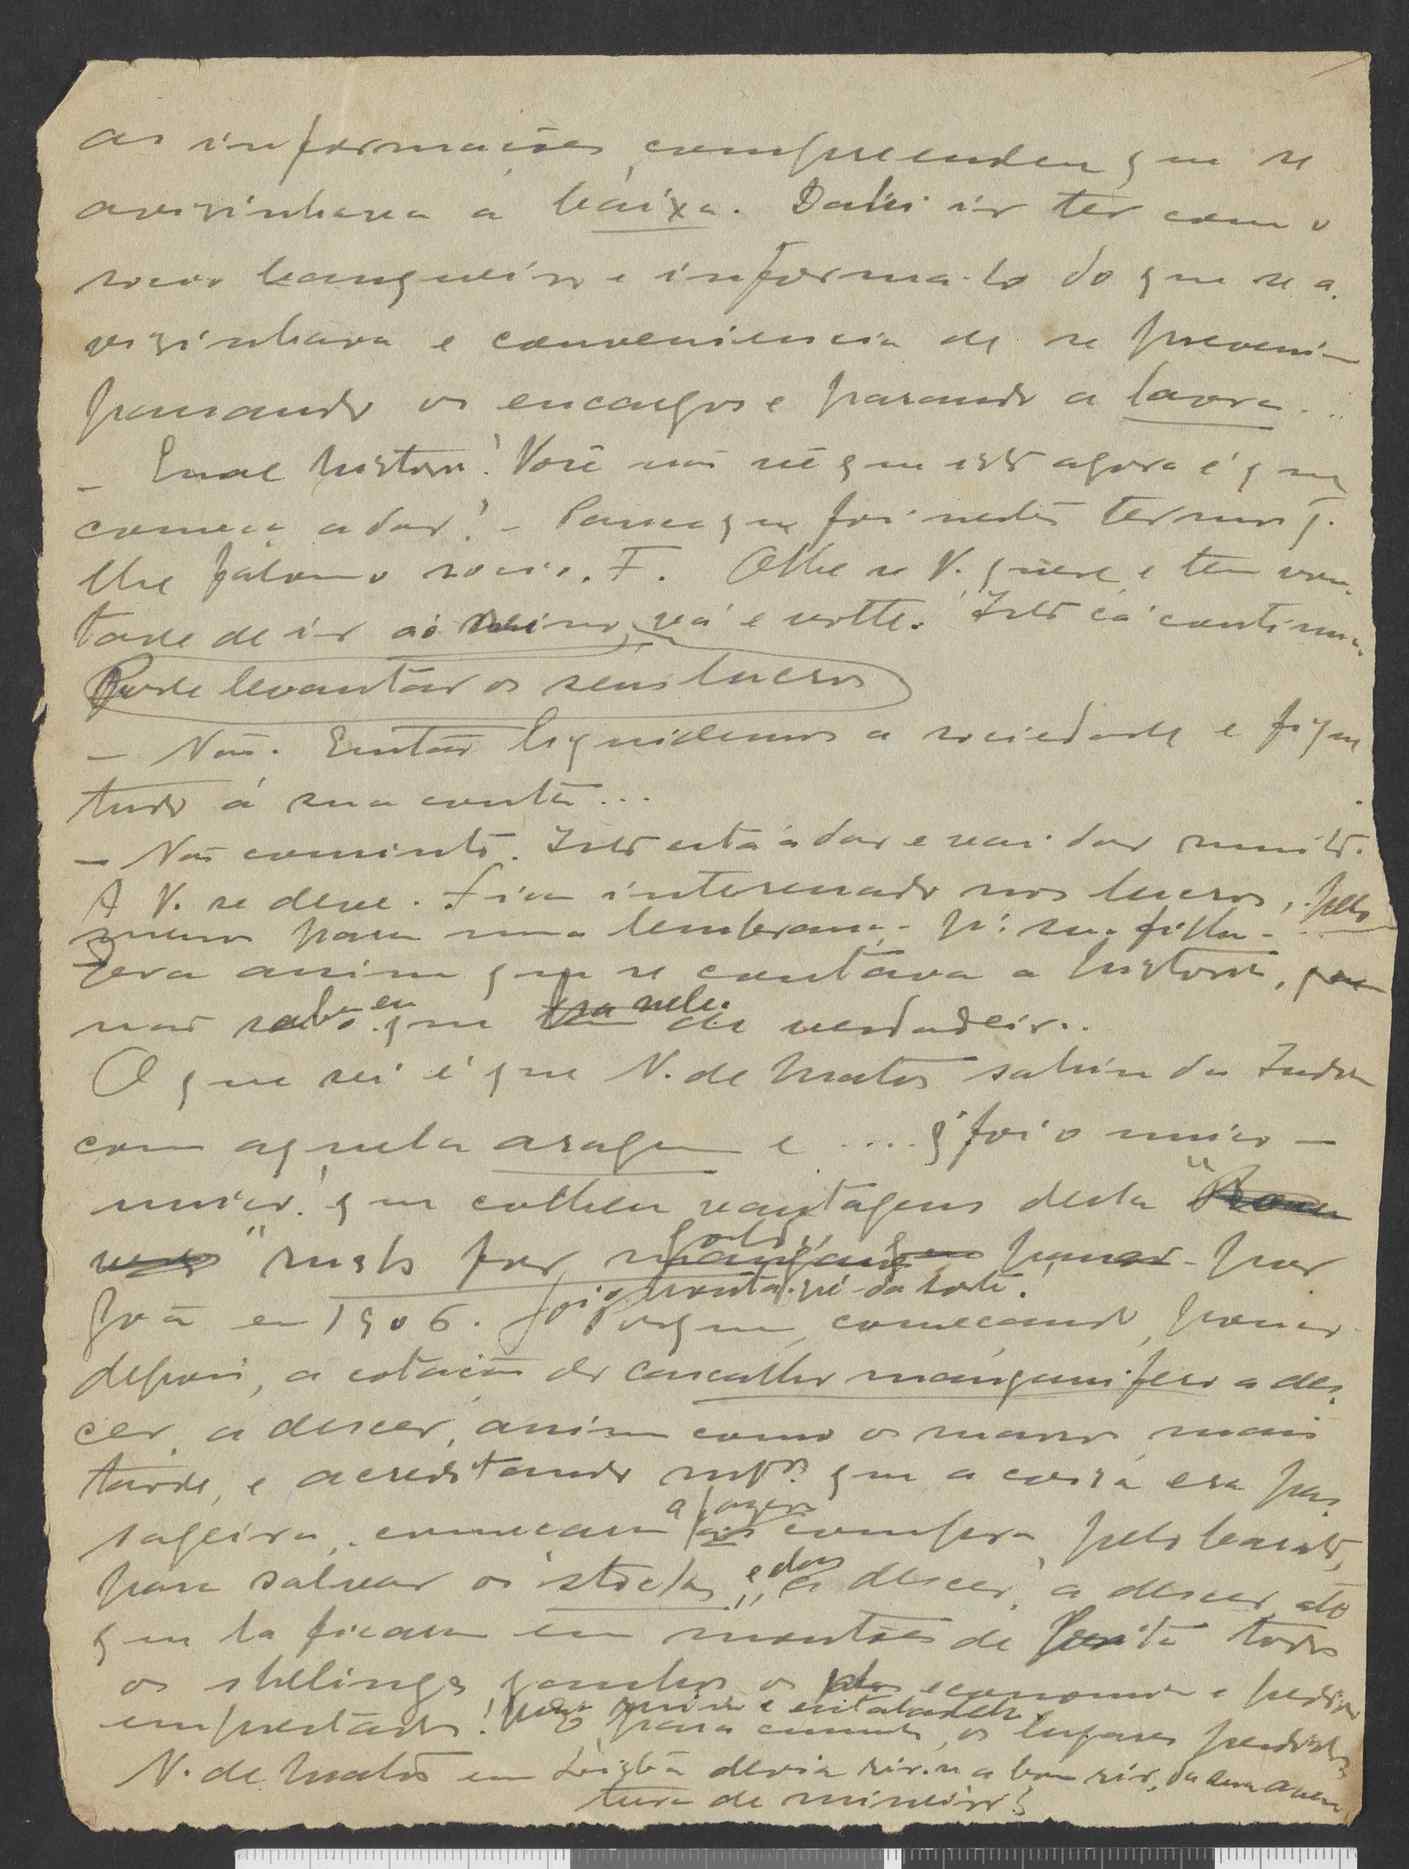 as informações compreendeu que se
avisinhava a baixa. Dahi ir ter com o
socio banqueiro e informa-lo do que se a-
visinhava e conveniencia de se prevenir
pausando os encargos e parando a lavra...
— Qual historia! Você não vê que isto agora é que
começa a dar! — Parece que foi nestes termos q.
lhe falou o socio. F. Olhe se V. quere e tem von-
tade de ir ao reino, vá e volte. Isto cá continua.
Pode levantar os seus lucros
— Não. Então liquidemos a sociedade e fique
tudo á sua conta...
— Não consinto. Isto está a dar e vai dar muito.
A V. se deve. Fica interessado nos lucros, pelo
menos para uma lembrança pª sua filha.
Era assim que se contava a historia,
não sabendo eu que de verdadeiro..
O que sei é que N. de Matos sahiu da India
com aquela aragem e .... q' foi o unico —
unico! que colheu vantagens desta "
" rush for gold, por
Goa em 1906. Foi o ponta-pé da sorte.
Porque, começando, pouco
depois, a cotação do cascalho manganifero a des-
cer, a descer, assim como o massa mais
tarde, e acreditando mtos que a coisa era pas-
sageira, começaram a fazer compra, pelo barato,
para salvar os stocks, e a descer, a descer até
que lá ficaram em montões de perita todos
os shelings ganhos, os das economias e pedidos
emprestados! para cumulo, os lugares perdidos
N. de Matos em Lisboa devia rir-se a bom rir, da sua aven-
tura de mineiro!